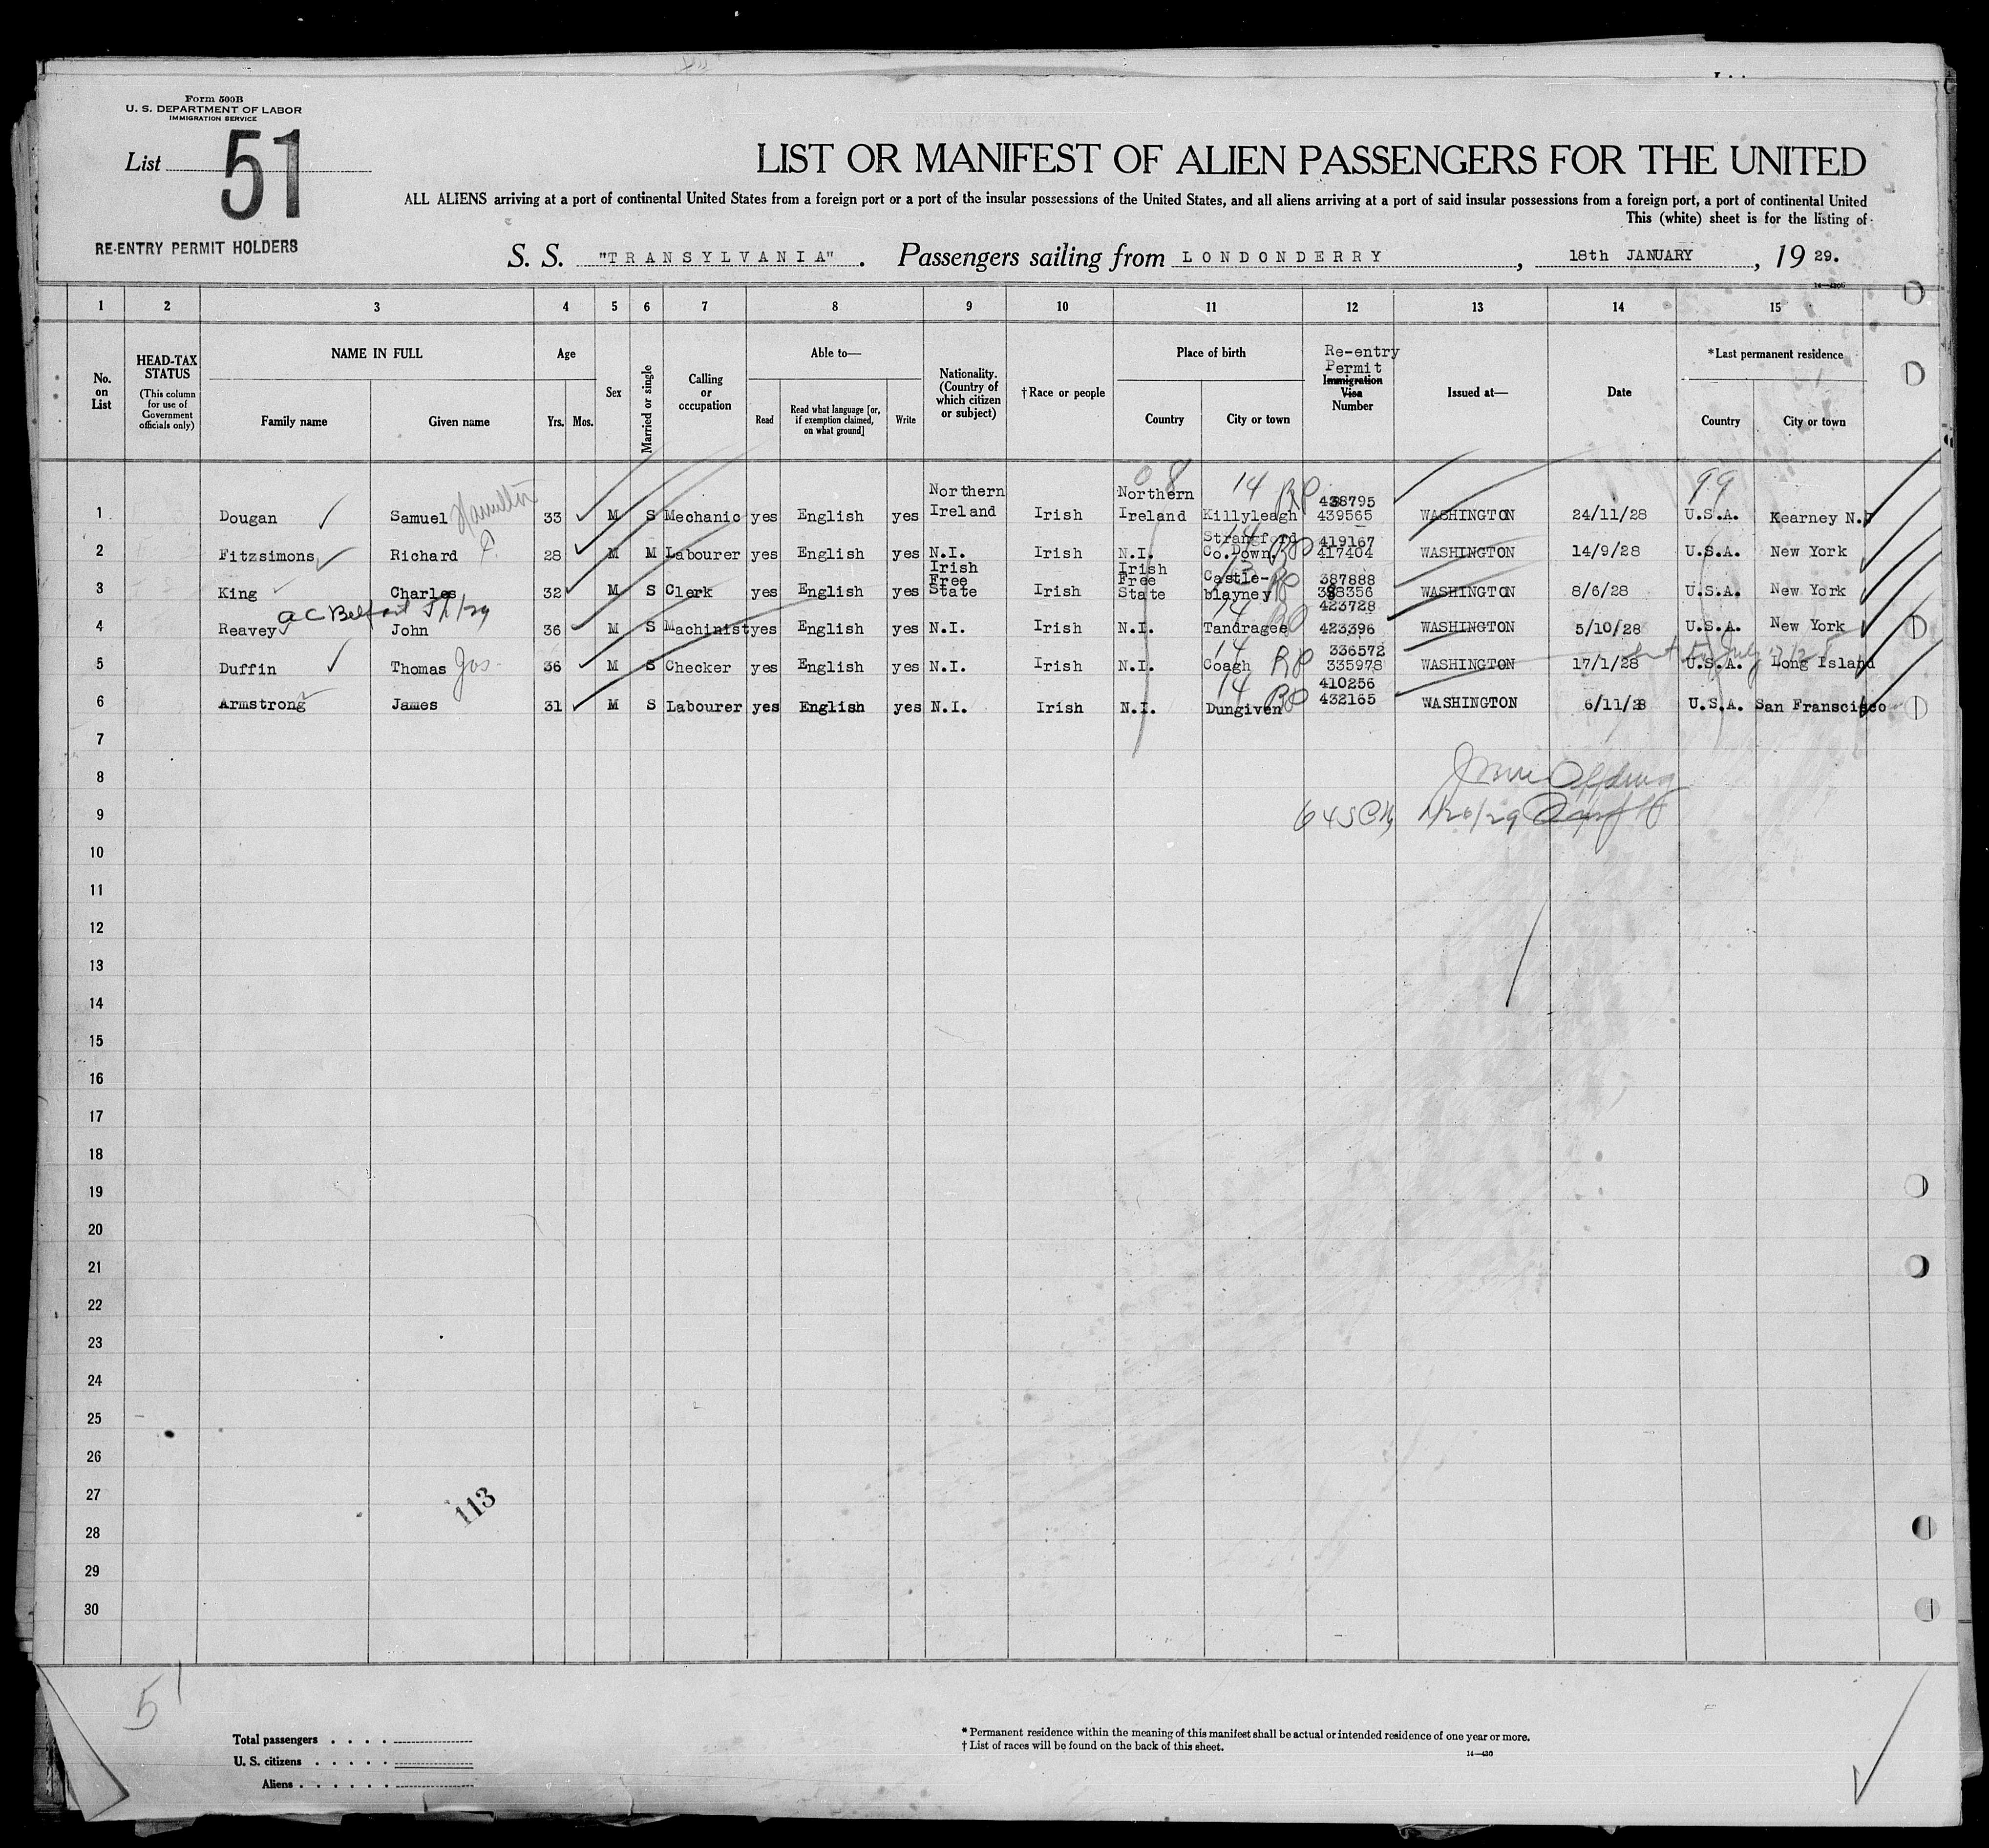 Form 500B
U. S. DEPARTMENT OF LABOR
IMMIGRATION SERVICE
List 51
RE-ENTRY PERMIT HOLDERS
LIST OR MANIFEST OF ALIEN PASSENGERS FOR THE UNITED
ALL ALIENS arriving at a port of continental United States from a foreign port or a port of the insular possessions of the United States, and all aliens arriving at a port of said insular possessions from a foreign port, a port of continental United
This (white) sheet is for the listing of
S. S. "TRANSYLVANIA". Passengers sailing from LONDONDERRY, 18th JANUARY, 19 29.
1 2 3 4 5 6 7 8 9 10 11 12 13 14 15
No. on List
HEAD-TAX STATUS
(This column for use of Government officials only)
NAME IN FULL
Family name Given name
Age
Yrs. Mos.
Sex
Married or single
Calling or occupation
Able to—
Read
Read what language [or, if exemption claimed, on what ground]
Write
Nationality. (Country of which citizen or subject)
†Race or people
Place of birth
Country City or town
Re-entry Permit
Immigration Visa Number
Issued at—
Date
*Last permanent residence
Country City or town
08 14 RP 99
1 Dougan Samuel Hamilton 33 M S Mechanic yes English yes Northern Ireland Irish Northern Ireland Killyleagh 438795 439565 WASHINGTON 24/11/28 U.S.A. Kearney N.J
2 Fitzsimons Richard 28 M M Labourer yes English yes N.I. Irish N.I. Strangford Co.Down. 14 RP 419167 417404 WASHINGTON 14/9/28 U.S.A. New York
3 King Charles 32 M S Clerk yes English yes Irish Free State Irish Irish Free State Castle-blayney RP 387888 388356 WASHINGTON 8/6/28 U.S.A. New York
AC Belfast
4 Reavey John 36 M S Machinist yes English yes N.I. Irish N.I. Tandragee 14 RP 423728 423396 WASHINGTON 5/10/28 U.S.A. New York
5 Duffin Thomas Jos. 36 M S Checker yes English yes N.I. Irish N.I. Coagh 14 RP 336572 335978 WASHINGTON 17/1/28 U.S.A. Long Island
6 Armstrong James 31 M S Labourer yes English yes N.I. Irish N.I. Dungiven 14 RP 410256 432165 WASHINGTON 6/11/28 U.S.A. San Franscisco
7
8
9 1/26/29
10
11
12
13
14
15
16
17
18
19
20
21
22
23
24
25
26
27
113
28
29
30
51
Total passengers
U. S. citizens
Aliens
* Permanent residence within the meaning of this manifest shall be actual or intended residence of one year or more.
† List of races will be found on the back of this sheet.
14—430